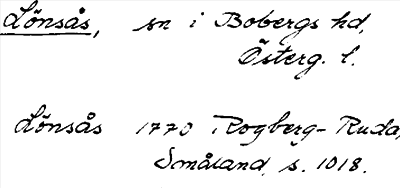 Lönsås, sn i Bobergs hd,
Österg. l.
Lönsås 1770 Rogberg-Ruda,
Småland, s. 1018.